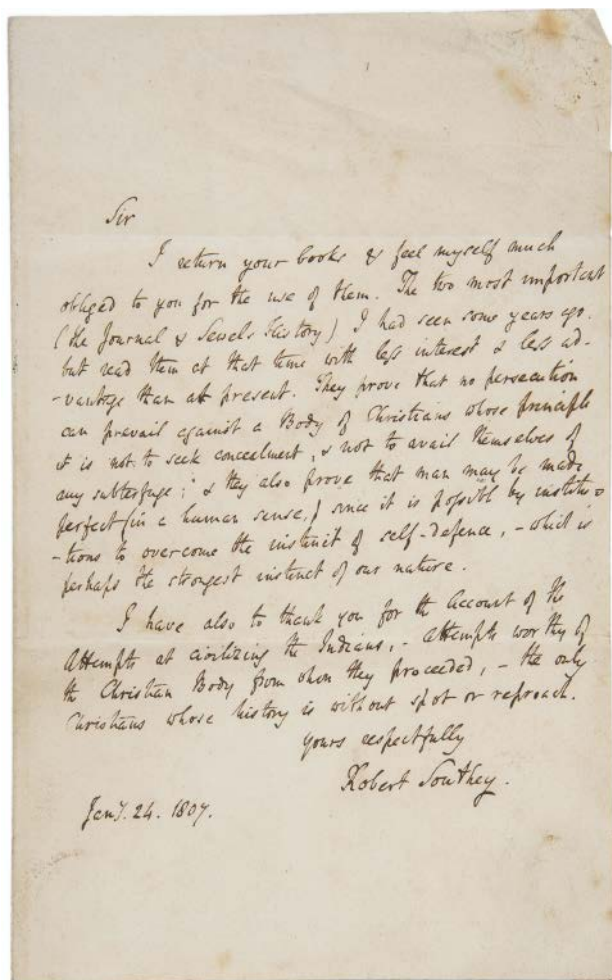 Sir
I return your books & feel myself much
obliged to you for the use of them. The two most important
(the Journal & Sewels History) I had seen some years ago.
but read them at that time with less interest & less ad-
-vantage than at present. They prove that no persecution
can prevail against a Body of Christians whose principle
it is not to seek concealment, & not to avail themselves of
any subterfuge; & they also prove that man may be made
perfect (in a human sense,) since it is possible by institu-
-tions to overcome the instinct of self-defence, - which is
perhaps the strongest instinct of our nature.
I have also to thank you for the Account of the
Attempts at civilizing the Indians, - attempts worthy of
the Christian Body from whom they proceeded, - the only
Christians whose history is without spot or reproach.
yours respectfully
Robert Southey.
Jany. 24. 1807.